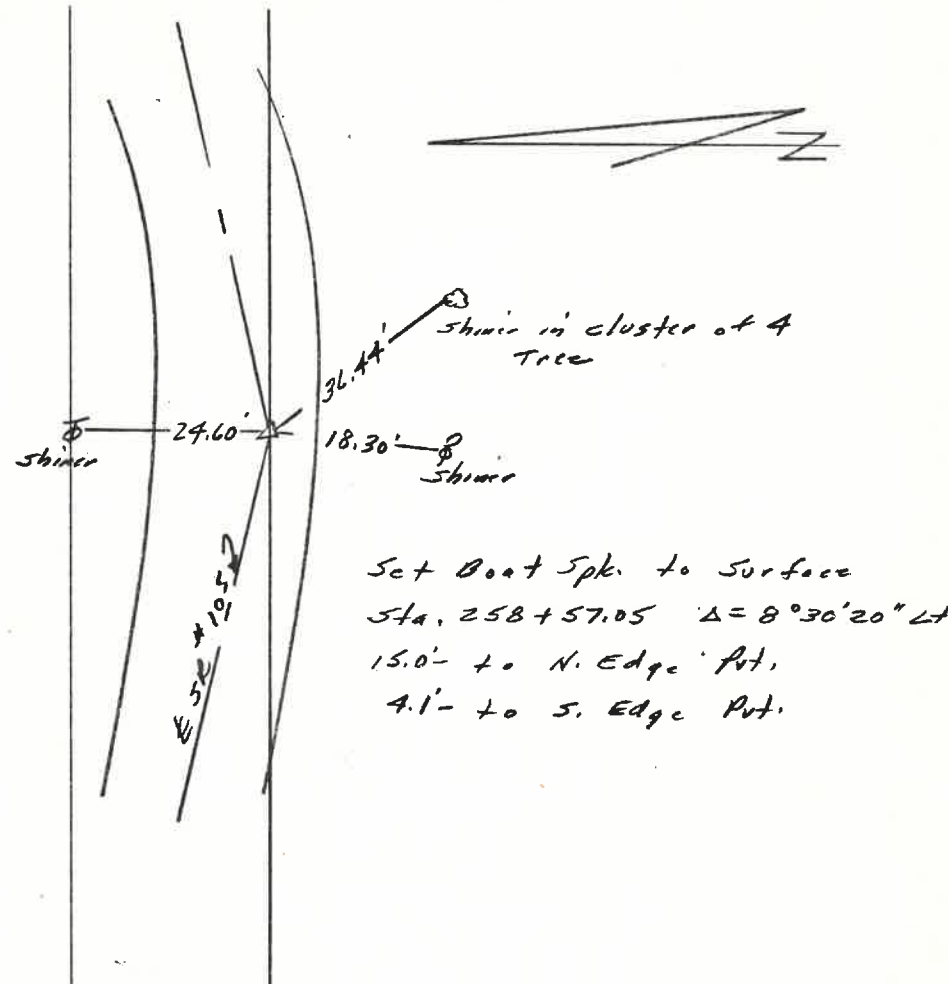 N
shiner in cluster of 4
Tree
36.44'
24.60'
18.30'
shiner
shiner
Set Boat Spk. to Surface
Sta. 258+57.05 Δ= 8°30'20" Lt
15.0'- to N. Edge Pvt.
4.1'- to S. Edge Pvt.